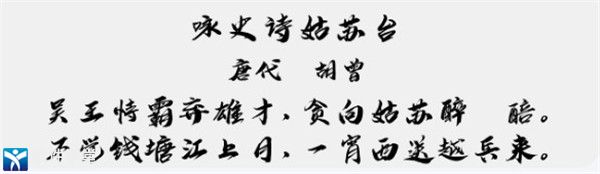 咏史诗姑苏台
唐代 胡曾
吴王恃霸弃雄才，贪向姑苏醉 醅。
不觉钱塘江上月，一宵西送越兵来。